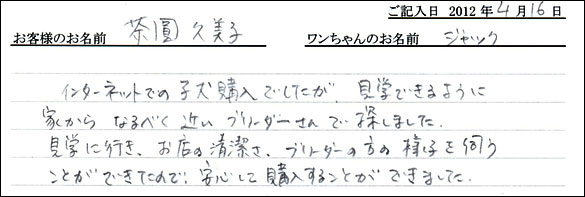 ご記入日 2012年4月16日
お客様のお名前 茶圓 久美子 ワンちゃんのお名前 ジャック
インターネットでの子犬購入でしたが、見学できるように
家から なるべく近いブリーダーさんで探しました。
見学に行き、お店の清潔さ、ブリーダーの方の様子を伺う
ことができたので、安心して購入することができました。